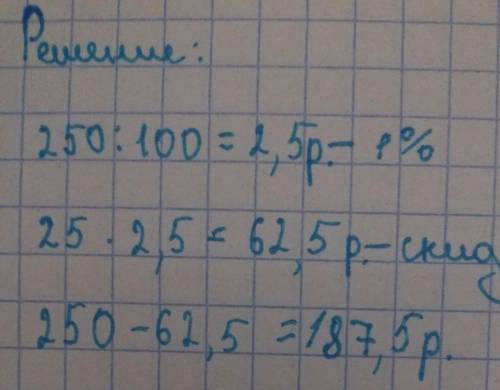 Решение:
250:100=2,5р.- 1%
25·2,5=62,5р.-скид
250-62,5=187,5р.